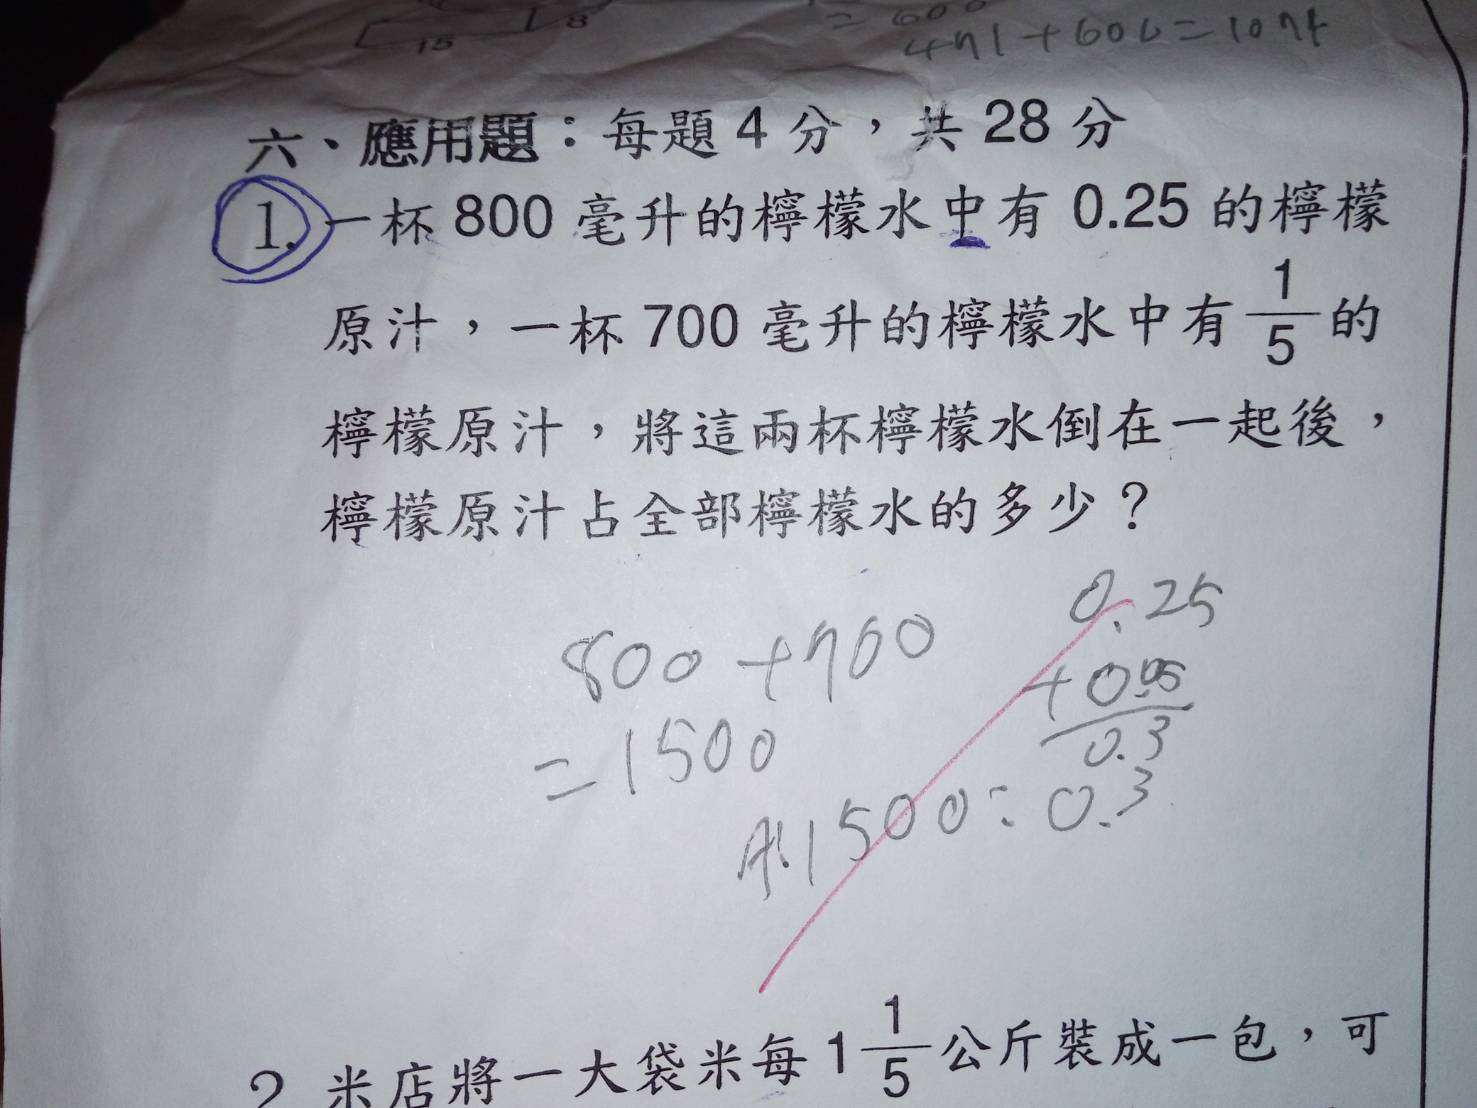 15
8
= 600
471+600=1071
六、應用題：每題4分，共28分
1. 一杯800毫升的檸檬水中有0.25的檸檬
原汁，一杯700毫升的檸檬水中有1/5的
檸檬原汁，將這兩杯檸檬水倒在一起後，
檸檬原汁占全部檸檬水的多少？
800+700
=1500
0.25
+0.05
0.3
A:1500:0.3
2. 米店將一大袋米每1 1/5公斤裝成一包，可